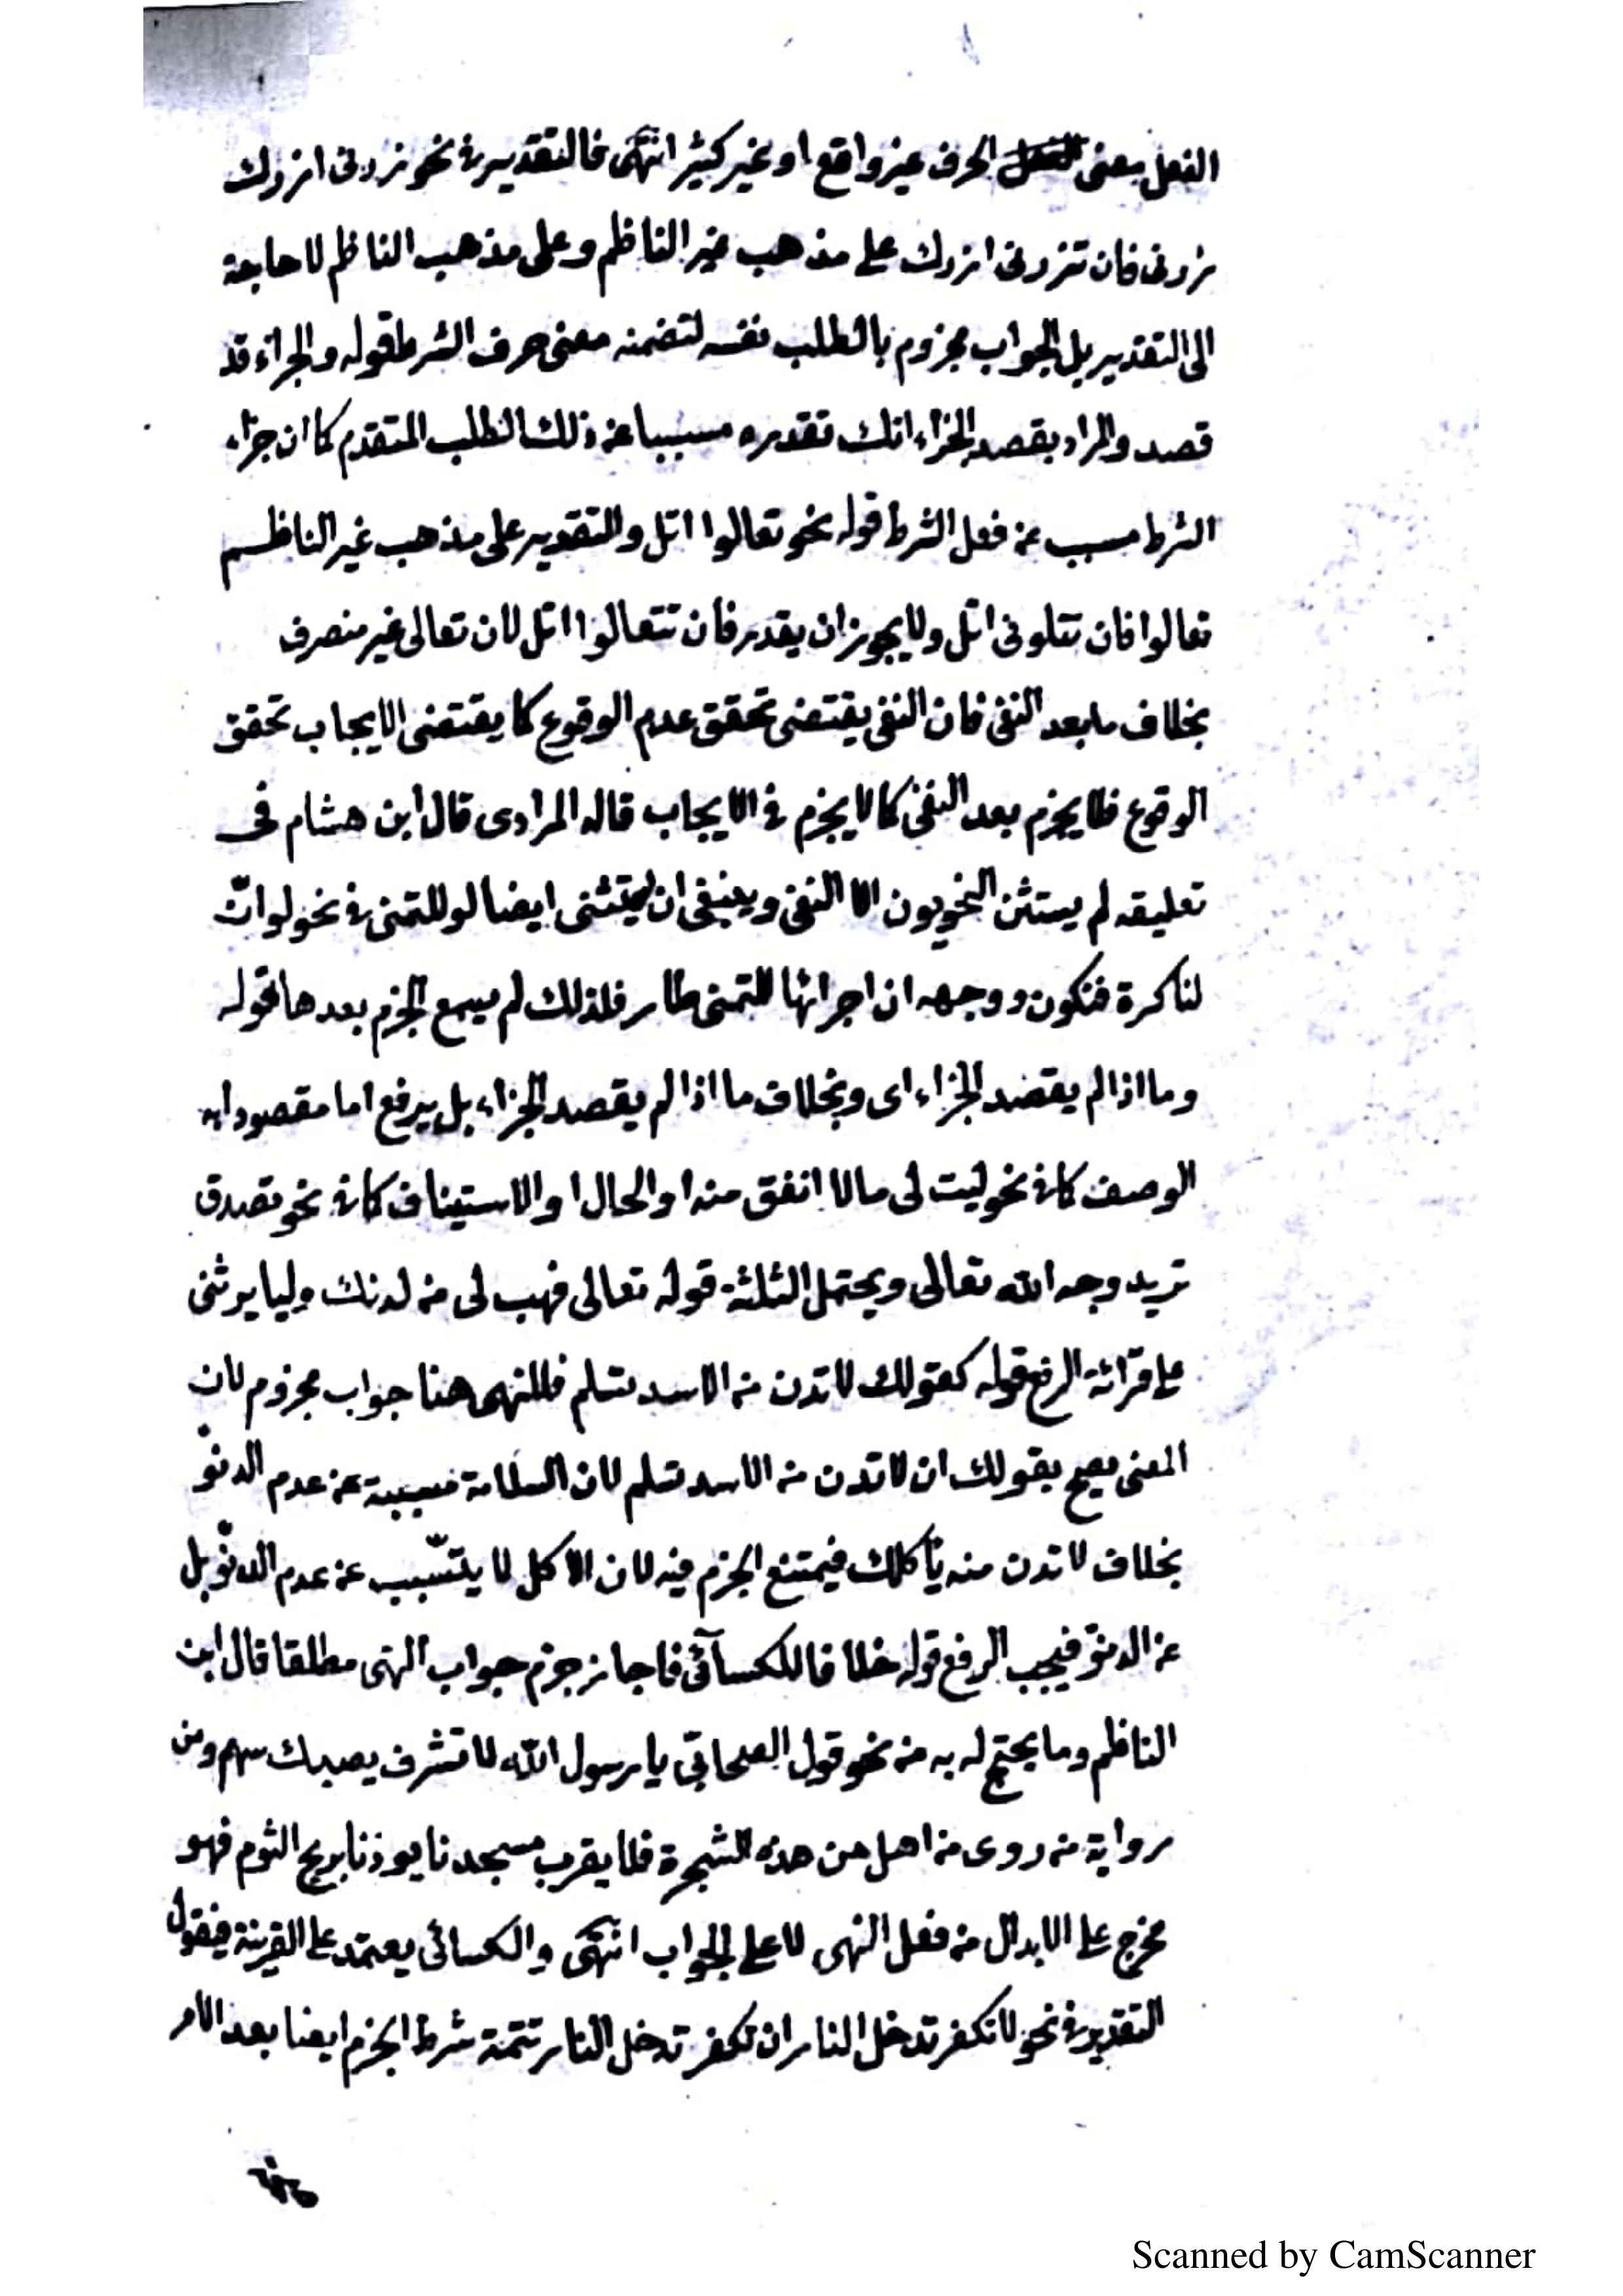 الفعل بمعنى الحرف غير واقع او غير كثير انتهى فالتقدير فى نحو زرنى ازورك
زرنى فان تزرنى ازورك على مذهب غير الناظم وعلى مذهب الناظم لا حاجة
الى التقدير بل الجواب مجزوم بالطلب نفسه لتضمنه معنى حرف الشرط قوله والجزاء قد
قصد والمراد بقصد الجزاء انك تقدره مسببا عن ذلك الطلب المتقدم كما ان جزاء
الشرط مسبب عن فعل الشرط قوله نحو تعالوا اتل والتقدير على مذهب غير الناظم
تعالوا فان تتلونى اتل ولا يجوز ان يقدر فان تتعالوا اتل لان تعالى غير منصرف
بخلاف ما بعد النفى فان النفى يقتضى تحقق عدم الوقوع كما يقتضى الايجاب تحقق
الوقوع فلا يجزم بعد النفى كما لا يجزم فى الايجاب قاله المرادى قال ابن هشام فى
تعليقه لم يستثن النحويون الا النفى وينبغى ان يستثنى ايضا لو للتمنى فى نحو لو انّ
لنا كرة فنكون ووجهه ان اجرائها للتمنى طار فلذلك لم يسمع الجزم بعدها قوله
وما اذا لم يقصد الجزاء اى وبخلاف ما اذا لم يقصد الجزاء بل يرفع اما مقصودا به
الوصف كما فى نحو ليت لى مالا انفق منه او الحال او الاستيناف كما فى نحو تصدق
تريد وجه الله تعالى ويحتمل الثلثة قوله تعالى فهب لى من لدنك وليا يرثنى
على قرائة الرفع قوله كقولك لا تدن من الاسد تسلم فللنهى هنا جواب مجزوم لان
المعنى يصح بقولك ان لا تدن من الاسد تسلم لان السلامة مسببة عن عدم الدنوّ
بخلاف لا تدن منه يأكلك فيمتنع الجزم فيه لان الاكل لا يتسّبب عن عدم الدنوّ بل
عن الدنوّ فيجب الرفع قوله خلافا للكسآئى فاجاز جزم جواب النهى مطلقا قال ابن
الناظم وما يحتج له به من نحو قول الصحابى يا رسول الله لا تشرف يصبك سهم ومن
رواية من روى من اهل من هذه الشجرة فلا يقرب مسجدنا يوذنا بريح الثوم فهو
مخرج على الابدال من فعل النهى لا على الجواب انتهى والكسائى يعتمد على القرينة فيقول
التقدير فى نحو لا تكفر تدخل النار ان تكفر تدخل النار تتمة شرط الجزم ايضا بعد الامر
Scanned by CamScanner